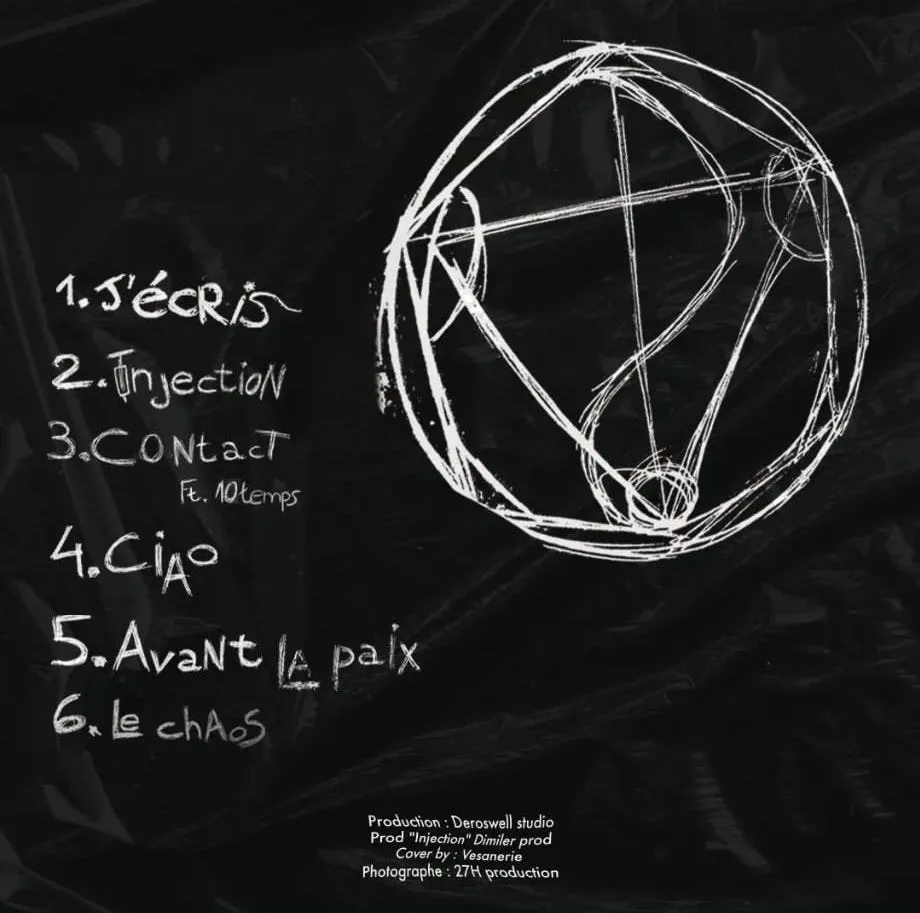 1. J'écris
2. Injection
3. Contact
Ft. 10temps
4. Ciao
5. Avant la paix
6. Le chaos
Production : Deroswell studio
Prod "Injection" Dimiler prod
Cover by : Vesanerie
Photographe : 27H production